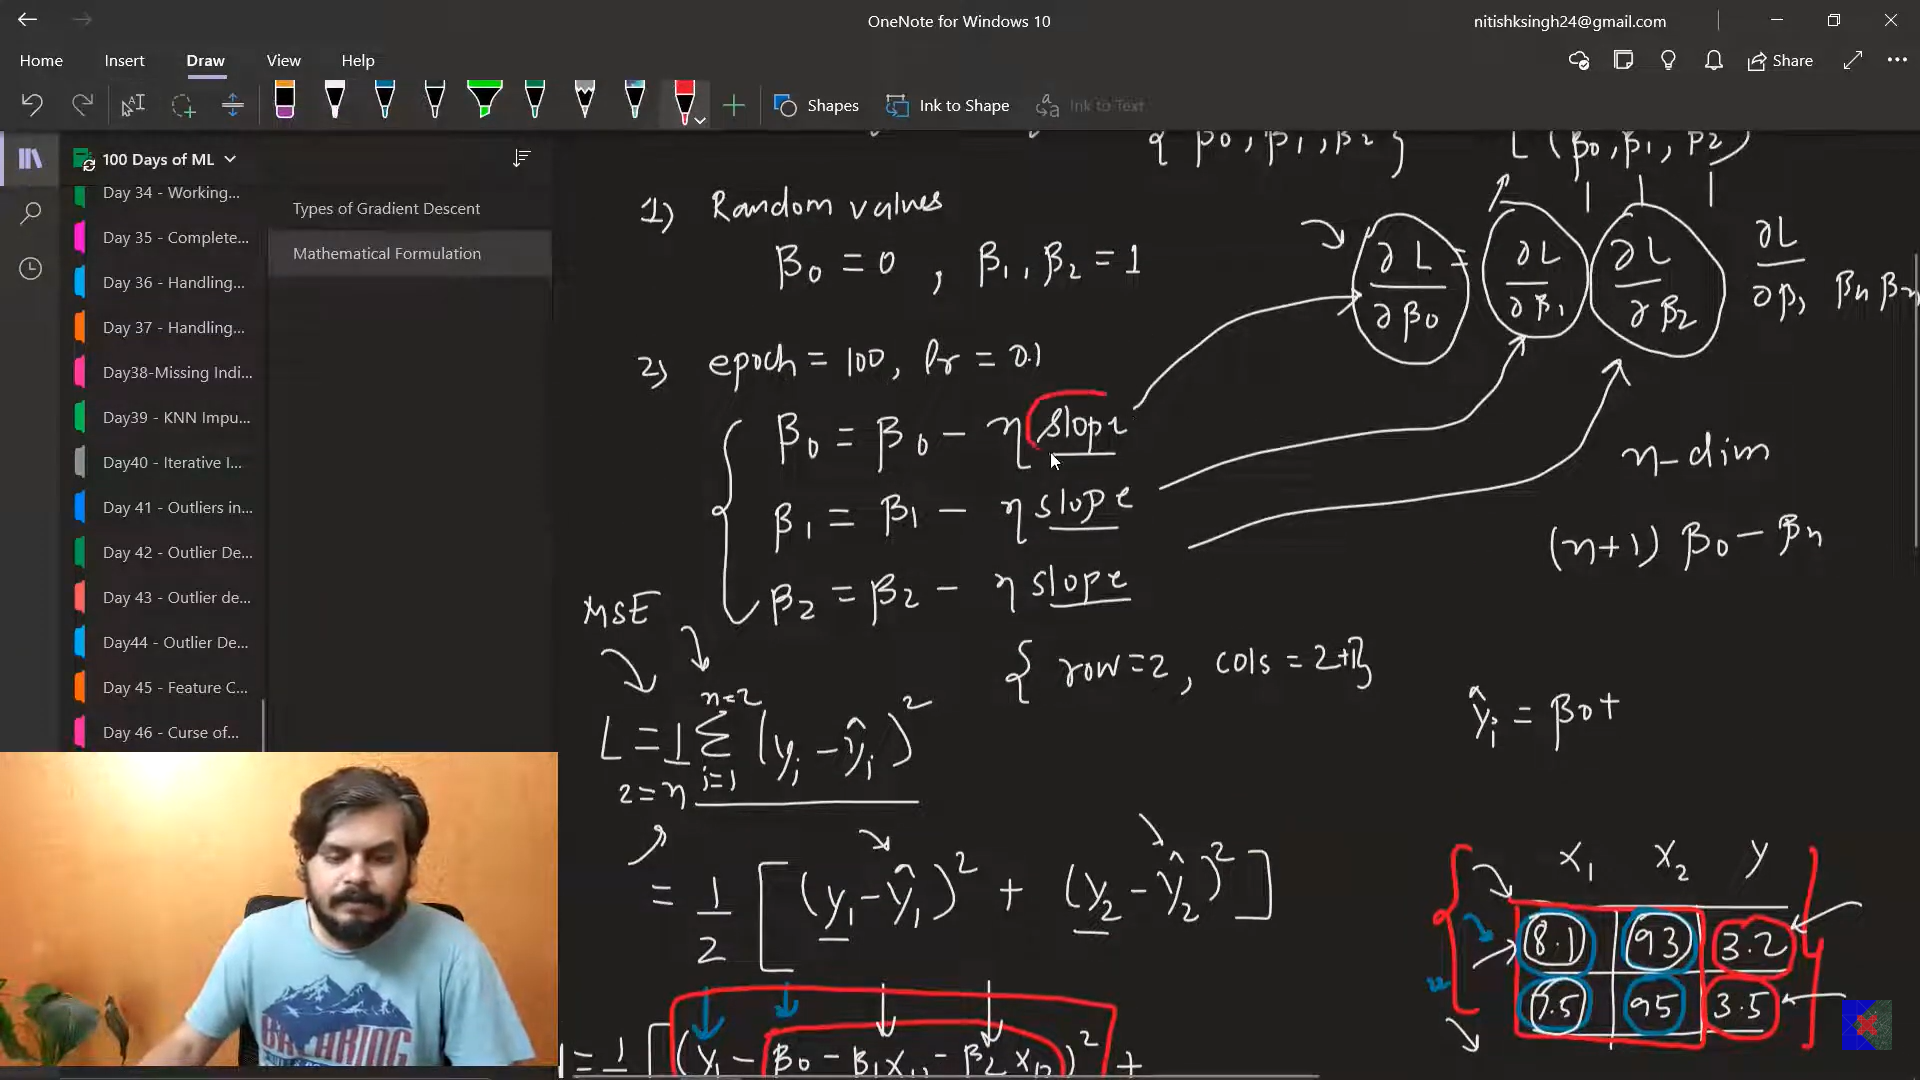 OneNote for Windows 10
nitishksingh24@gmail.com
Home Insert Draw View Help
Share
Shapes
Ink to Shape
Ink to Text
100 Days of ML
Day 34 - Working...
Day 35 - Complete...
Day 36 - Handling...
Day 37 - Handling...
Day38-Missing Indi...
Day39 - KNN Impu...
Day40 - Iterative I...
Day 41 - Outliers in...
Day 42 - Outlier De...
Day 43 - Outlier de...
Day44 - Outlier De...
Day 45 - Feature C...
Day 46 - Curse of...
Types of Gradient Descent
Mathematical Formulation
{ β0, β1, β2 } L (β0, β1, β2)
1) Random values
β0 = 0 , β1, β2 = 1
∂L/∂β0 = ∂L/∂β1 ∂L/∂β2 ∂L/∂β1
2) epoch = 100, lr = 0.1
β0 = β0 - η slope
β1 = β1 - η slope
β2 = β2 - η slope
n-dim
(n+1) β0 - βn
MSE
{ row = 2, cols = 2+1}
L = 1/n Σ (yi - ŷi)²
n=2
i=1
2 = n
ŷi = β0 +
= 1/2 [ (y1 - ŷ1)² + (y2 - ŷ2)² ]
X1 X2 Y
8.1 93 3.2
7.5 95 3.5
= 1 [ (y1 - β0 - β1x11 - β2x12)² +